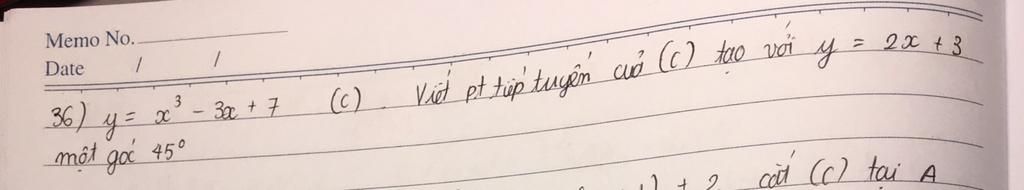 Memo No.
Date / /
36) y = x³ - 3x + 7 (C). Viết pt tiếp tuyến của (C) tạo với y = 2x + 3
một góc 45°
+ 2 cắt (C) tại A